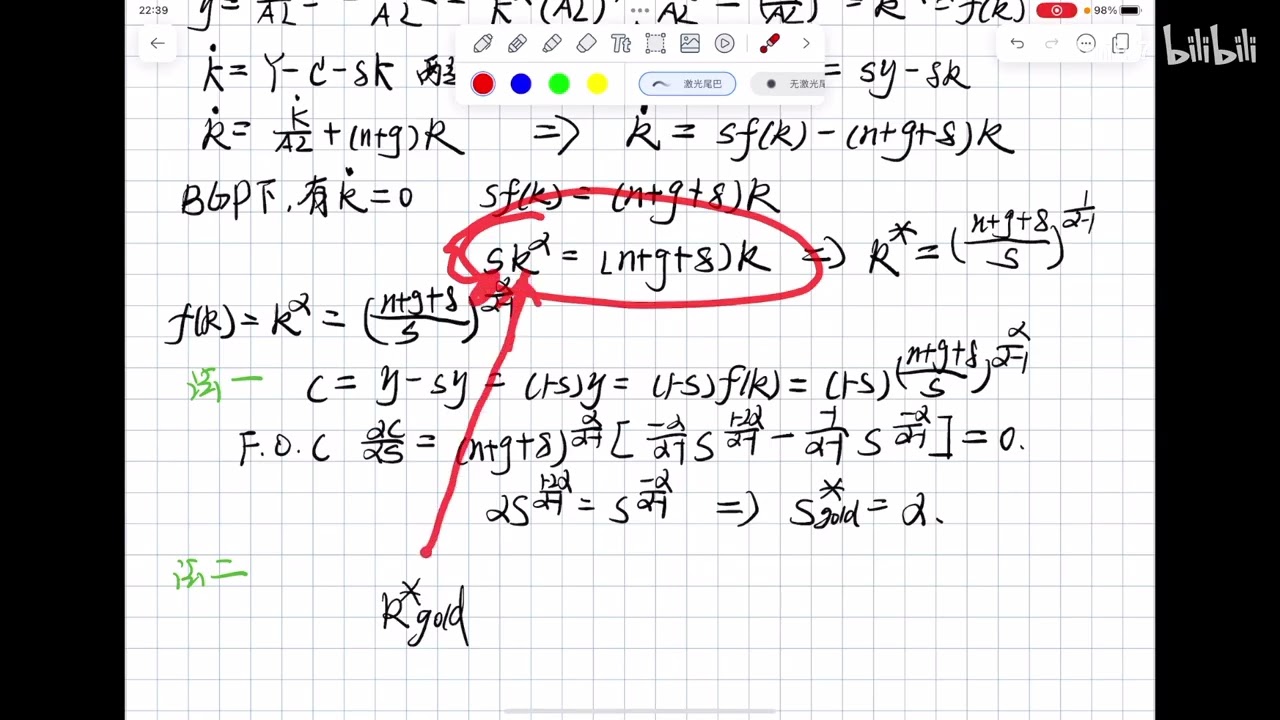 22:39
98%
bilibili
Tt
激光尾巴
无激光尾
K̇ = Y - C - δK 两
= sy - δk
k̇ = K̇/AL + (n+g)k => k̇ = sf(k) - (n+g+δ)k
BGP下, 有k̇ = 0 sf(k) = (n+g+δ)k
sk^α = (n+g+δ)k => k* = ((n+g+δ)/s)^(1/(α-1))
f(k) = k^α = ((n+g+δ)/s)^(α/(α-1))
法一 C = y - sy = (1-s)y = (1-s)f(k) = (1-s)((n+g+δ)/s)^(α/(α-1))
F.O.C ∂C/∂S = (n+g+δ)^(α/(α-1)) [ -α/(α-1) S^((1-2α)/(α-1)) - -1/(α-1) S^(-α/(α-1)) ] = 0.
αS^((1-2α)/(α-1)) = S^(-α/(α-1)) => S*gold = α.
法二
k*gold